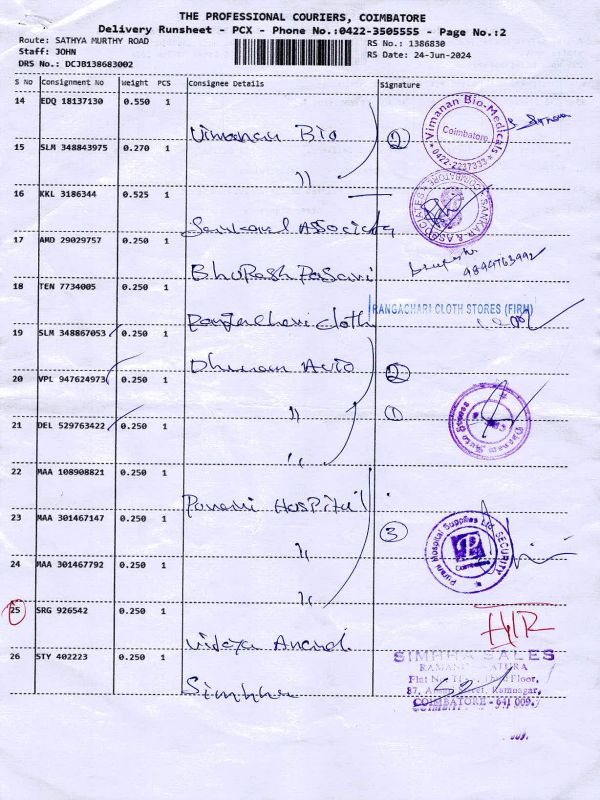 THE PROFESSIONAL COURIERS, COIMBATORE
Delivery Runsheet - PCX - Phone No.:0422-3505555 - Page No.:2
Route: SATHYA MURTHY ROAD
Staff: JOHN
DRS No.: DCJB138683002
RS No.: 1386830
RS Date: 24-Jun-2024
S No Consignment No Weight PCS Consignee Details Signature
14 EDQ 18137130 0.550 1 Vimanan Bio 2
Vimanan Bio-Medicals
Coimbatore
0422-2237333
15 SLM 348843975 0.270 1 "
16 KKL 3186344 0.525 1 Associates
17 AMD 29029757 0.250 1 Bhupesh
9894763992
18 TEN 7734005 0.250 1 Cloth
RANGACHARI CLOTH STORES (FIRM)
19 SLM 348867053 0.250 1 Auto 2
20 VPL 947624973 0.250 1 " 1
21 DEL 529763422 0.250 1 "
22 MAA 108908821 0.250 1 Hospital
23 MAA 301467147 0.250 1 " 3
Hospital Supplies Ltd. SECURITY
Coimbatore
24 MAA 301467792 0.250 1 "
25 SRG 926542 0.250 1 Vidya Anand
26 STY 402223 0.250 1 Simhha
SIMHHA SALES
Floor,
87, Street, Ramnagar,
COIMBATORE - 641 009.